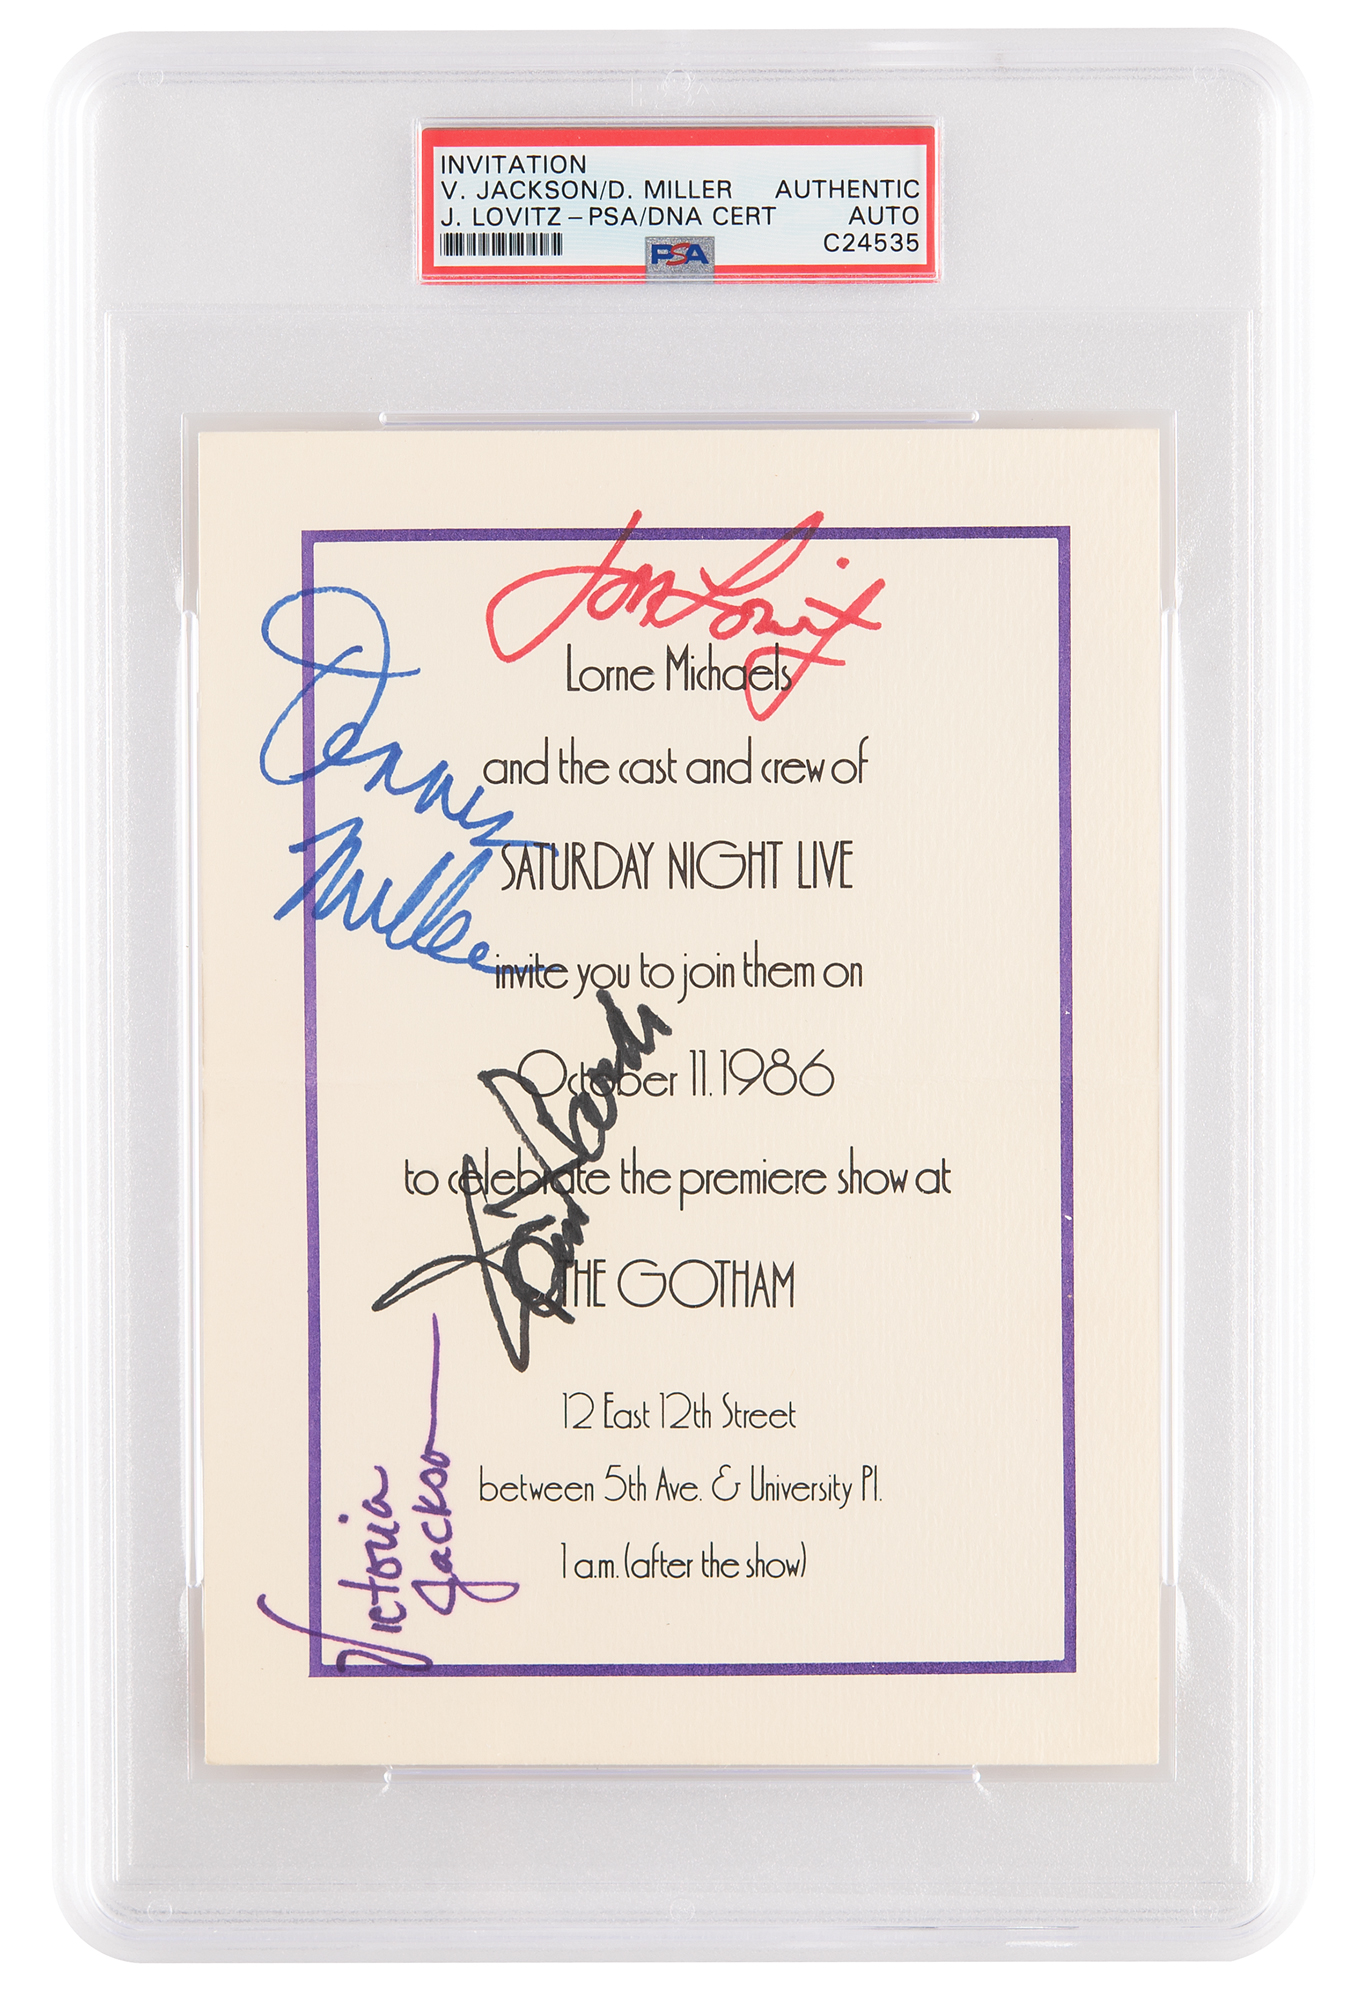 INVITATION
V. JACKSON/D. MILLER AUTHENTIC
J. LOVITZ – PSA/DNA CERT AUTO
PSA C24535
Jon Lovitz
Lorne Michaels
and the cast and crew of
Dennis
Miller
SATURDAY NIGHT LIVE
invite you to join them on
October 11, 1986
to celebrate the premiere show at
THE GOTHAM
12 East 12th Street
between 5th Ave. & University Pl.
1 a.m. (after the show)
Victoria
Jackson